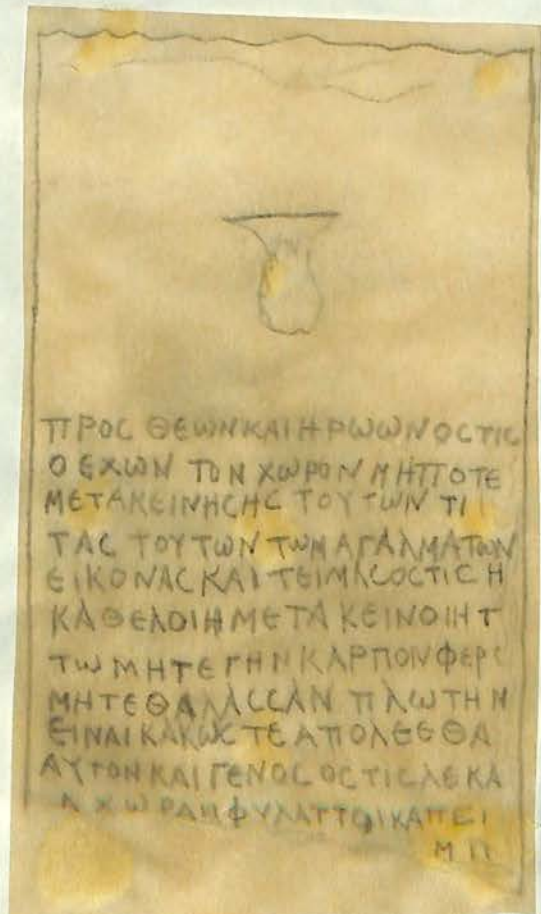 ΠΡΟС ΘΕΩΝ ΚΑΙ ΗΡΩΩΝ ΟСΤΙС
Ο ΕΧΩΝ ΤΟΝ ΧΩΡΟΝ ΜΗΠΟΤΕ
ΜΕΤΑΚΕΙΝΗСΗС ΤΟΥΤΩΝ ΤΙ
ΤΑС ΤΟΥΤΩΝ ΤΩΝ ΑΓΑΛΜΑΤΩΝ
ΕΙΚΟΝΑС ΚΑΙ ΤΕΙΜΑС ΟСΤΙС Η
ΚΑΘΕΛΟΙ Η ΜΕΤΑΚΕΙΝΟΙΗ Τ
ΤΩ ΜΗΤΕ ΓΗΝ ΚΑΡΠΟΝ ΦΕΡ
ΜΗΤΕ ΘΑΛΑССΑΝ ΠΛΩΤΗΝ
ΕΙΝΑΙ ΚΑΚΩС ΤΕ ΑΠΟΛΕСΘΑ
ΑΥΤΟΝ ΚΑΙ ΓΕΝΟС ΟСΤΙС ΔΕ ΚΑ
ΧΩΡΑΝ ΦΥΛΑΤΤΟΙ ΚΑΠΕΙ